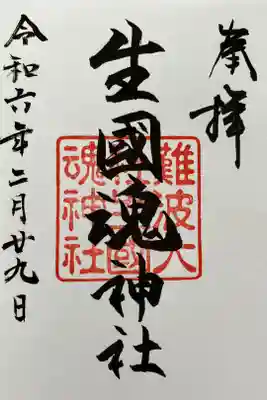 奉拝
生國魂神社
難波大
社生國
魂神社
令和六年二月廿九日